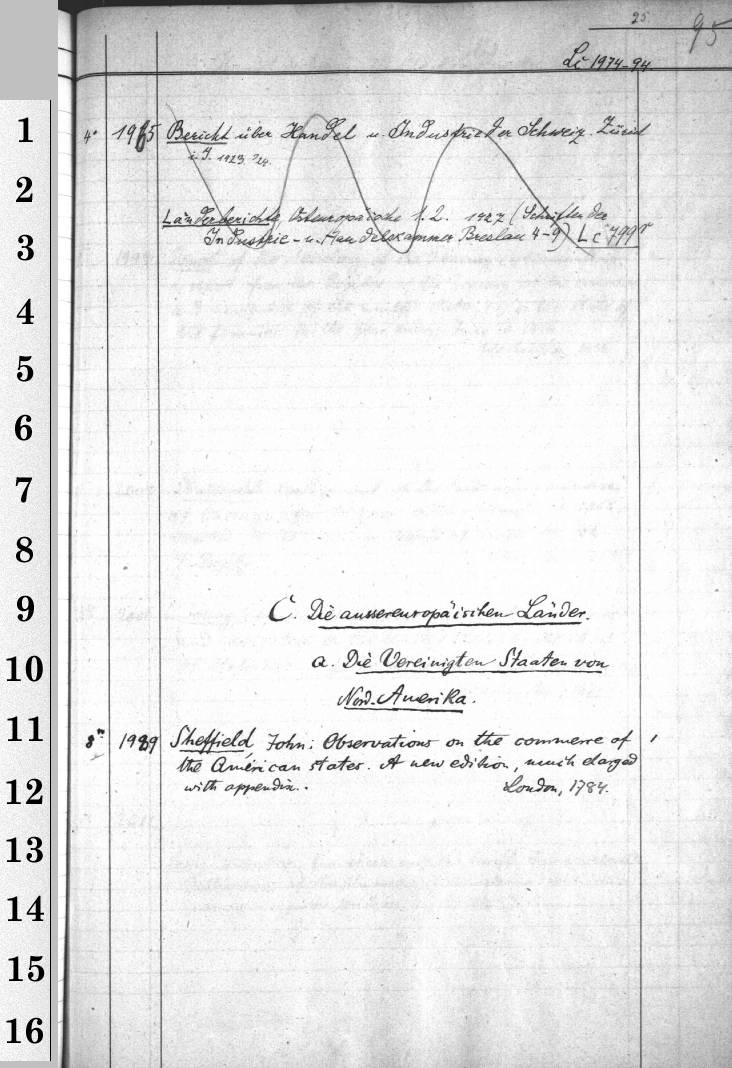 25
95
Lc 1974-94.
1
4° 1965 Bericht über Handel u. Industrie der Schweiz. Zürich
i. J. 1923. 24.
2
Länderberichte Osteuropäische 1. 2. 1927 (Schriften der
3
Industrie- u. Handelskammer Breslau 4-9) Lc 799
4
5
6
7
8
9
C. Die aussereuropäischen Länder.
10
a. Die Vereinigten Staaten von
Nord-Amerika.
11
8° 1989 Sheffield, John: Observations on the commerce of
the American states. A new edition, much elarged
12
with appendix.. London, 1784.
13
14
15
16